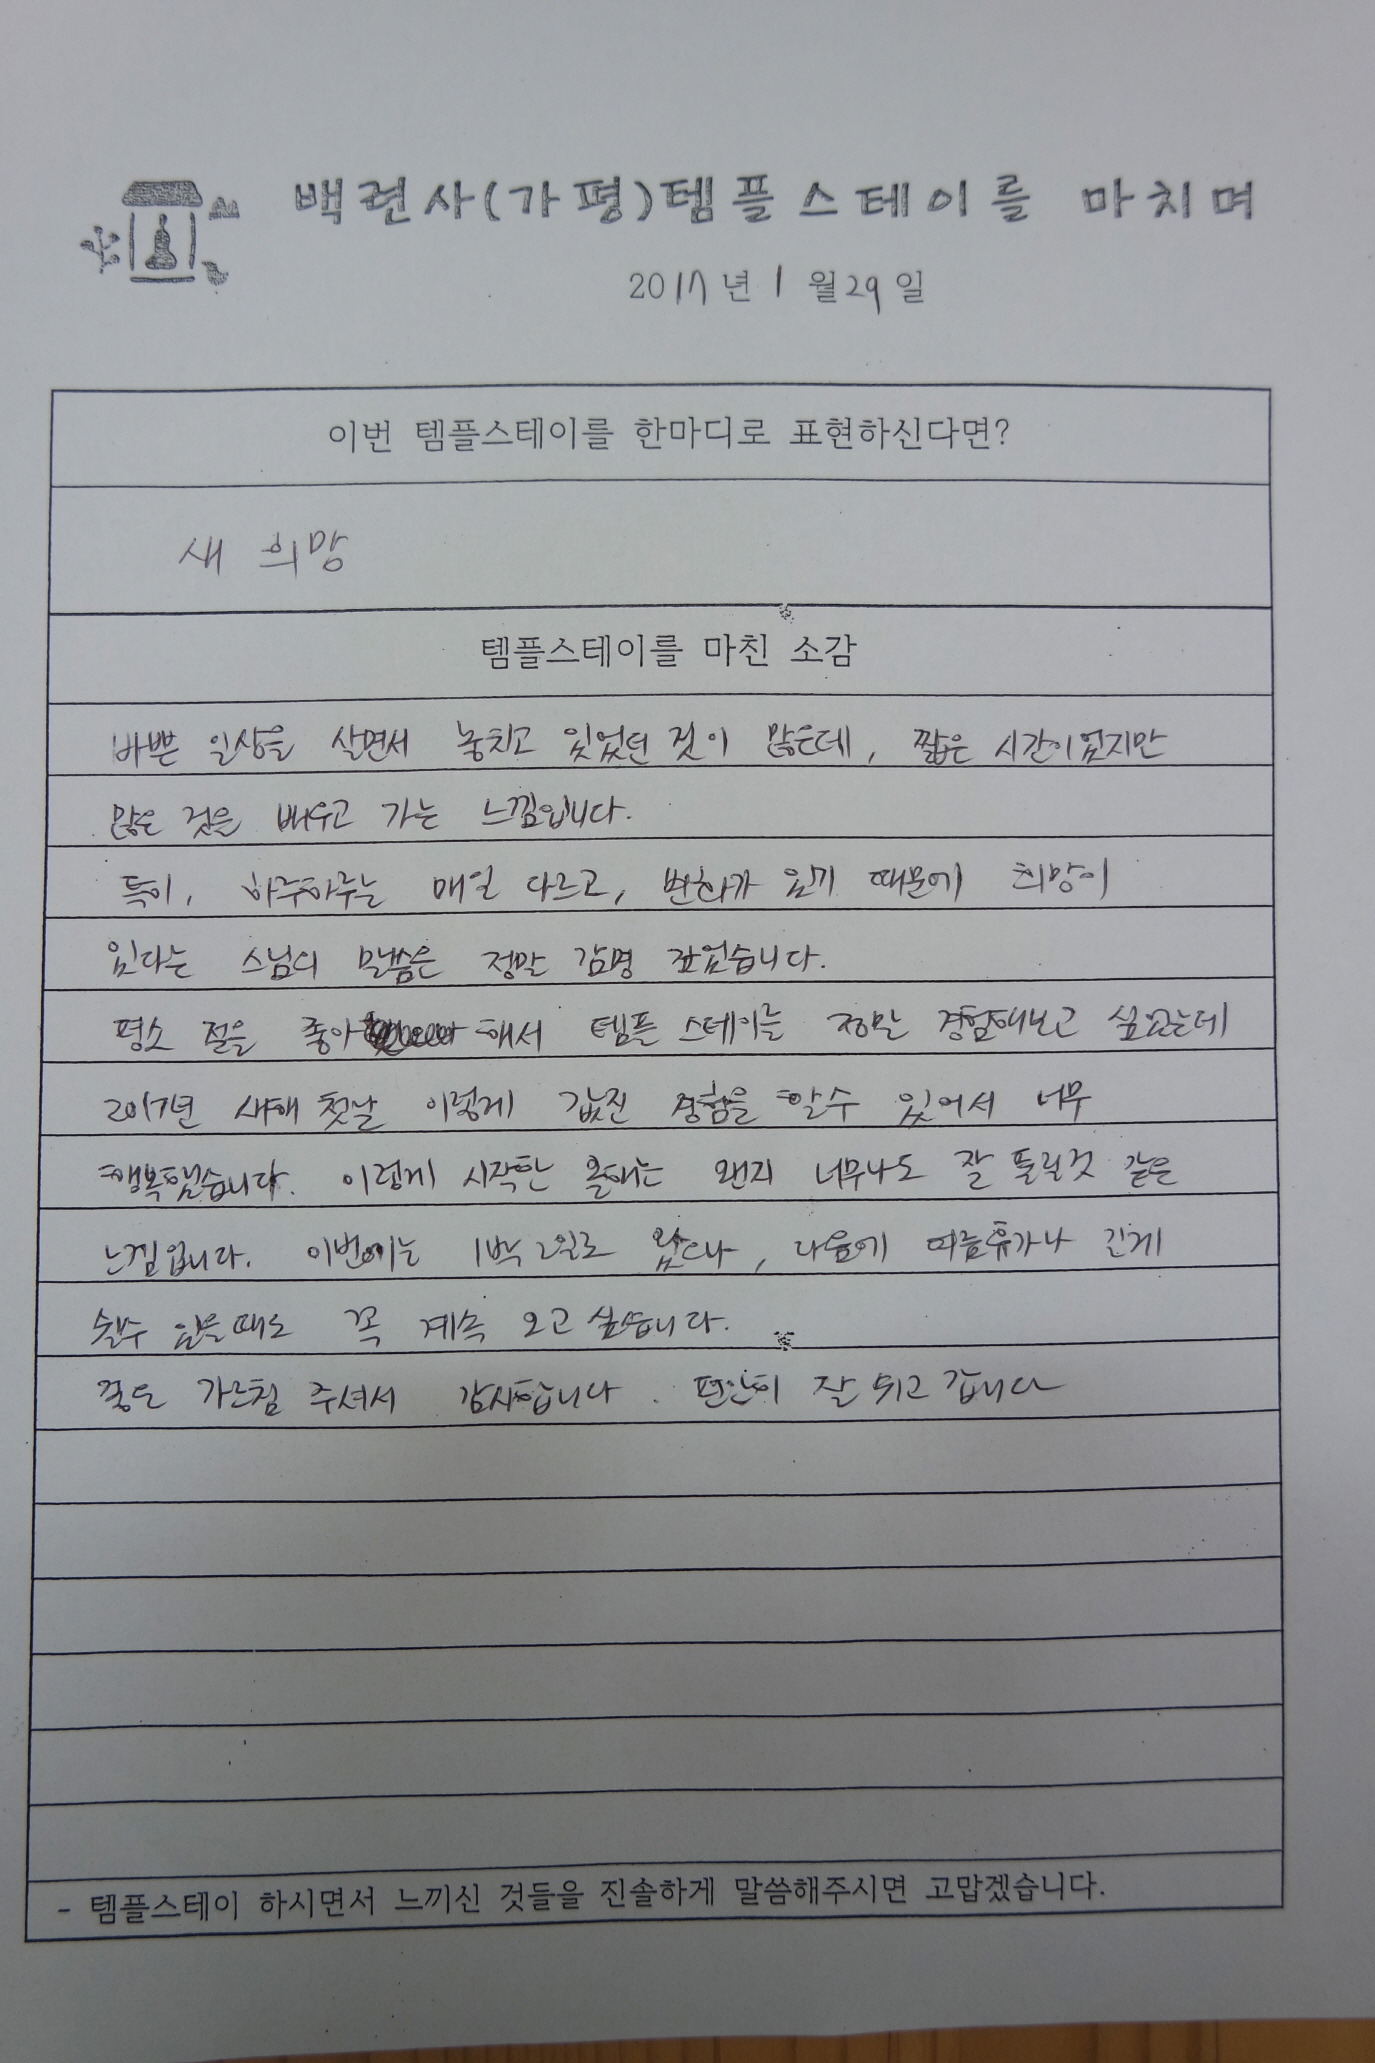 백련사(가평)템플스테이를 마치며
2017년 1월29일
이번 템플스테이를 한마디로 표현하신다면?
새 희망
템플스테이를 마친 소감
바쁜 일상을 살면서 놓치고 있었던 것이 많은데, 짧은 시간이었지만
많은 것을 배우고 가는 느낌입니다.
특히, 하루하루는 매일 다르고, 변화가 있기 때문에 희망이
있다는 스님의 말씀은 정말 감명 깊었습니다.
평소 절을 좋아 해서 템플 스테이를 정말 경험해보고 싶었는데
2017년 새해 첫날 이렇게 값진 경험을 할수 있어서 너무
행복했습니다. 이렇게 시작한 올해는 왠지 너무나도 잘 풀릴것 같은
느낌입니다. 이번에는 1박 2일로 왔으나, 다음에 여름휴가나 길게
쉴수 있을때도 꼭 계속 오고 싶습니다.
좋은 가르침 주셔서 감사합니다. 편안히 잘 쉬고 갑니다
- 템플스테이 하시면서 느끼신 것들을 진솔하게 말씀해주시면 고맙겠습니다.